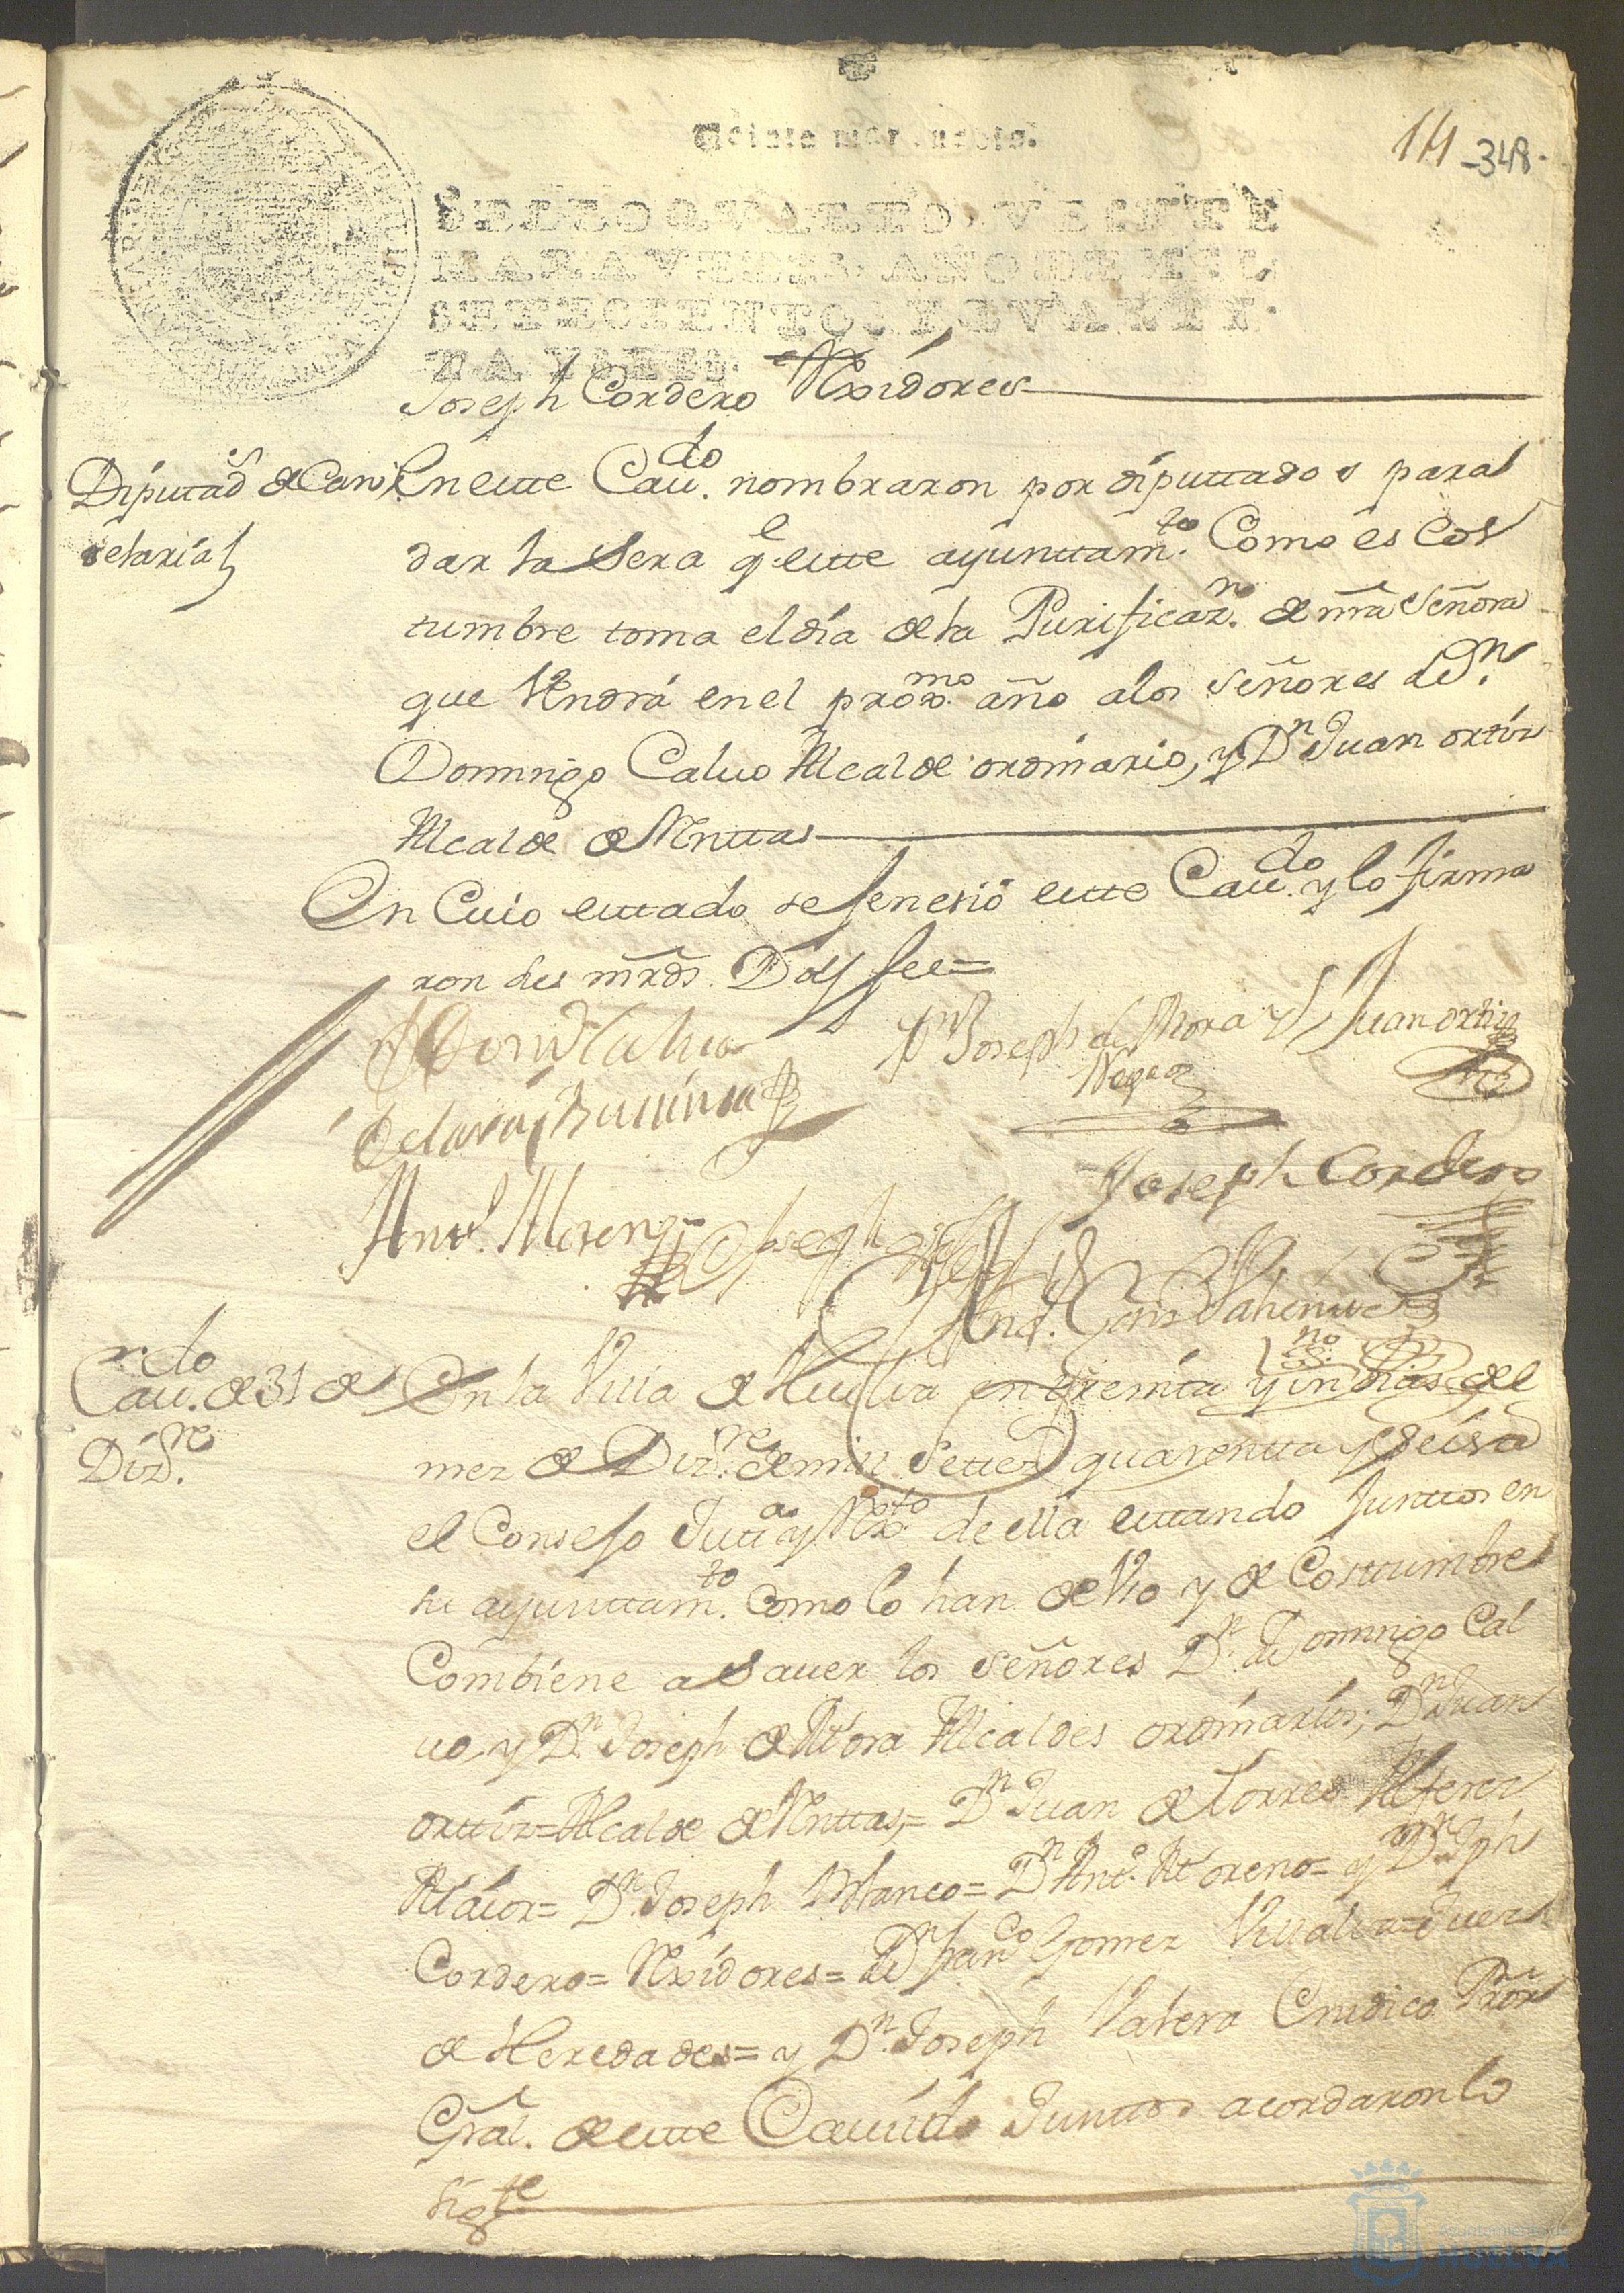 Veinte marauedis.
114 -348-
SELLO QVARTO, VEINTE
MARAVEDIS, AÑO DE MIL
SETECIENTOS Y QVAREN-
TA Y SEIS.
Joseph Cordero Rexidores
Diputados de Can
delaria
En este Cauᵈᵒ. nombraron por diputtados para
dar la Sera qᵉ este ayunttamᵗᵒ. Como es Cos
tumbre toma el dia de la Purificazⁿ. de nrã Señora
que Vendrá en el proxᵐᵒ. año a los Señores Dⁿ.
Domingo Caluo Alcalde ordinario, y Dⁿ Juan ortiz
Alcalde de Renttas
En Cuio esttado se fenesió este Cauᵈᵒ. y lo firma
ron sus mrds. Doy fee=
Joseph de Mora y
Negron
Juan ortiz
Antᵒ. Moreno
Joseph Cordero
Cauᵈᵒ. de 31 de
Dizʳᵉ.
En la Villa de Huelva en treinta y un dias del
mez de Dizʳᵉ. de mill Settezᵒˢ quarentta y seis a
el Consejo Justᵃ y Rexᵗᵒ de ella esttando Junttos en
su ayunttamᵗᵒ. Como lo han de Vso y de Costtumbre
Combiene a Sauer los Señores Dⁿ. Domingo Cal
uo y Dⁿ. Joseph de Mora Alcaldes ordinarios; Dⁿ Juan
orttiz= Alcalde de Renttas,= Dⁿ Juan de Torres Alferez
Maior= Dⁿ. Joseph Blanco= Dⁿ Antᵒ. Moreno= y Dⁿ Jph
Cordero= Rexidores= Dⁿ franᶜᵒ Gomez Villalva= Juez
de Heredades= y Dⁿ. Joseph Valera Cindico Proʳ
Gral. de este Cauildo Junttos acordaron lo
Sigᵗᵉ
Ayuntamiento de
HUELVA